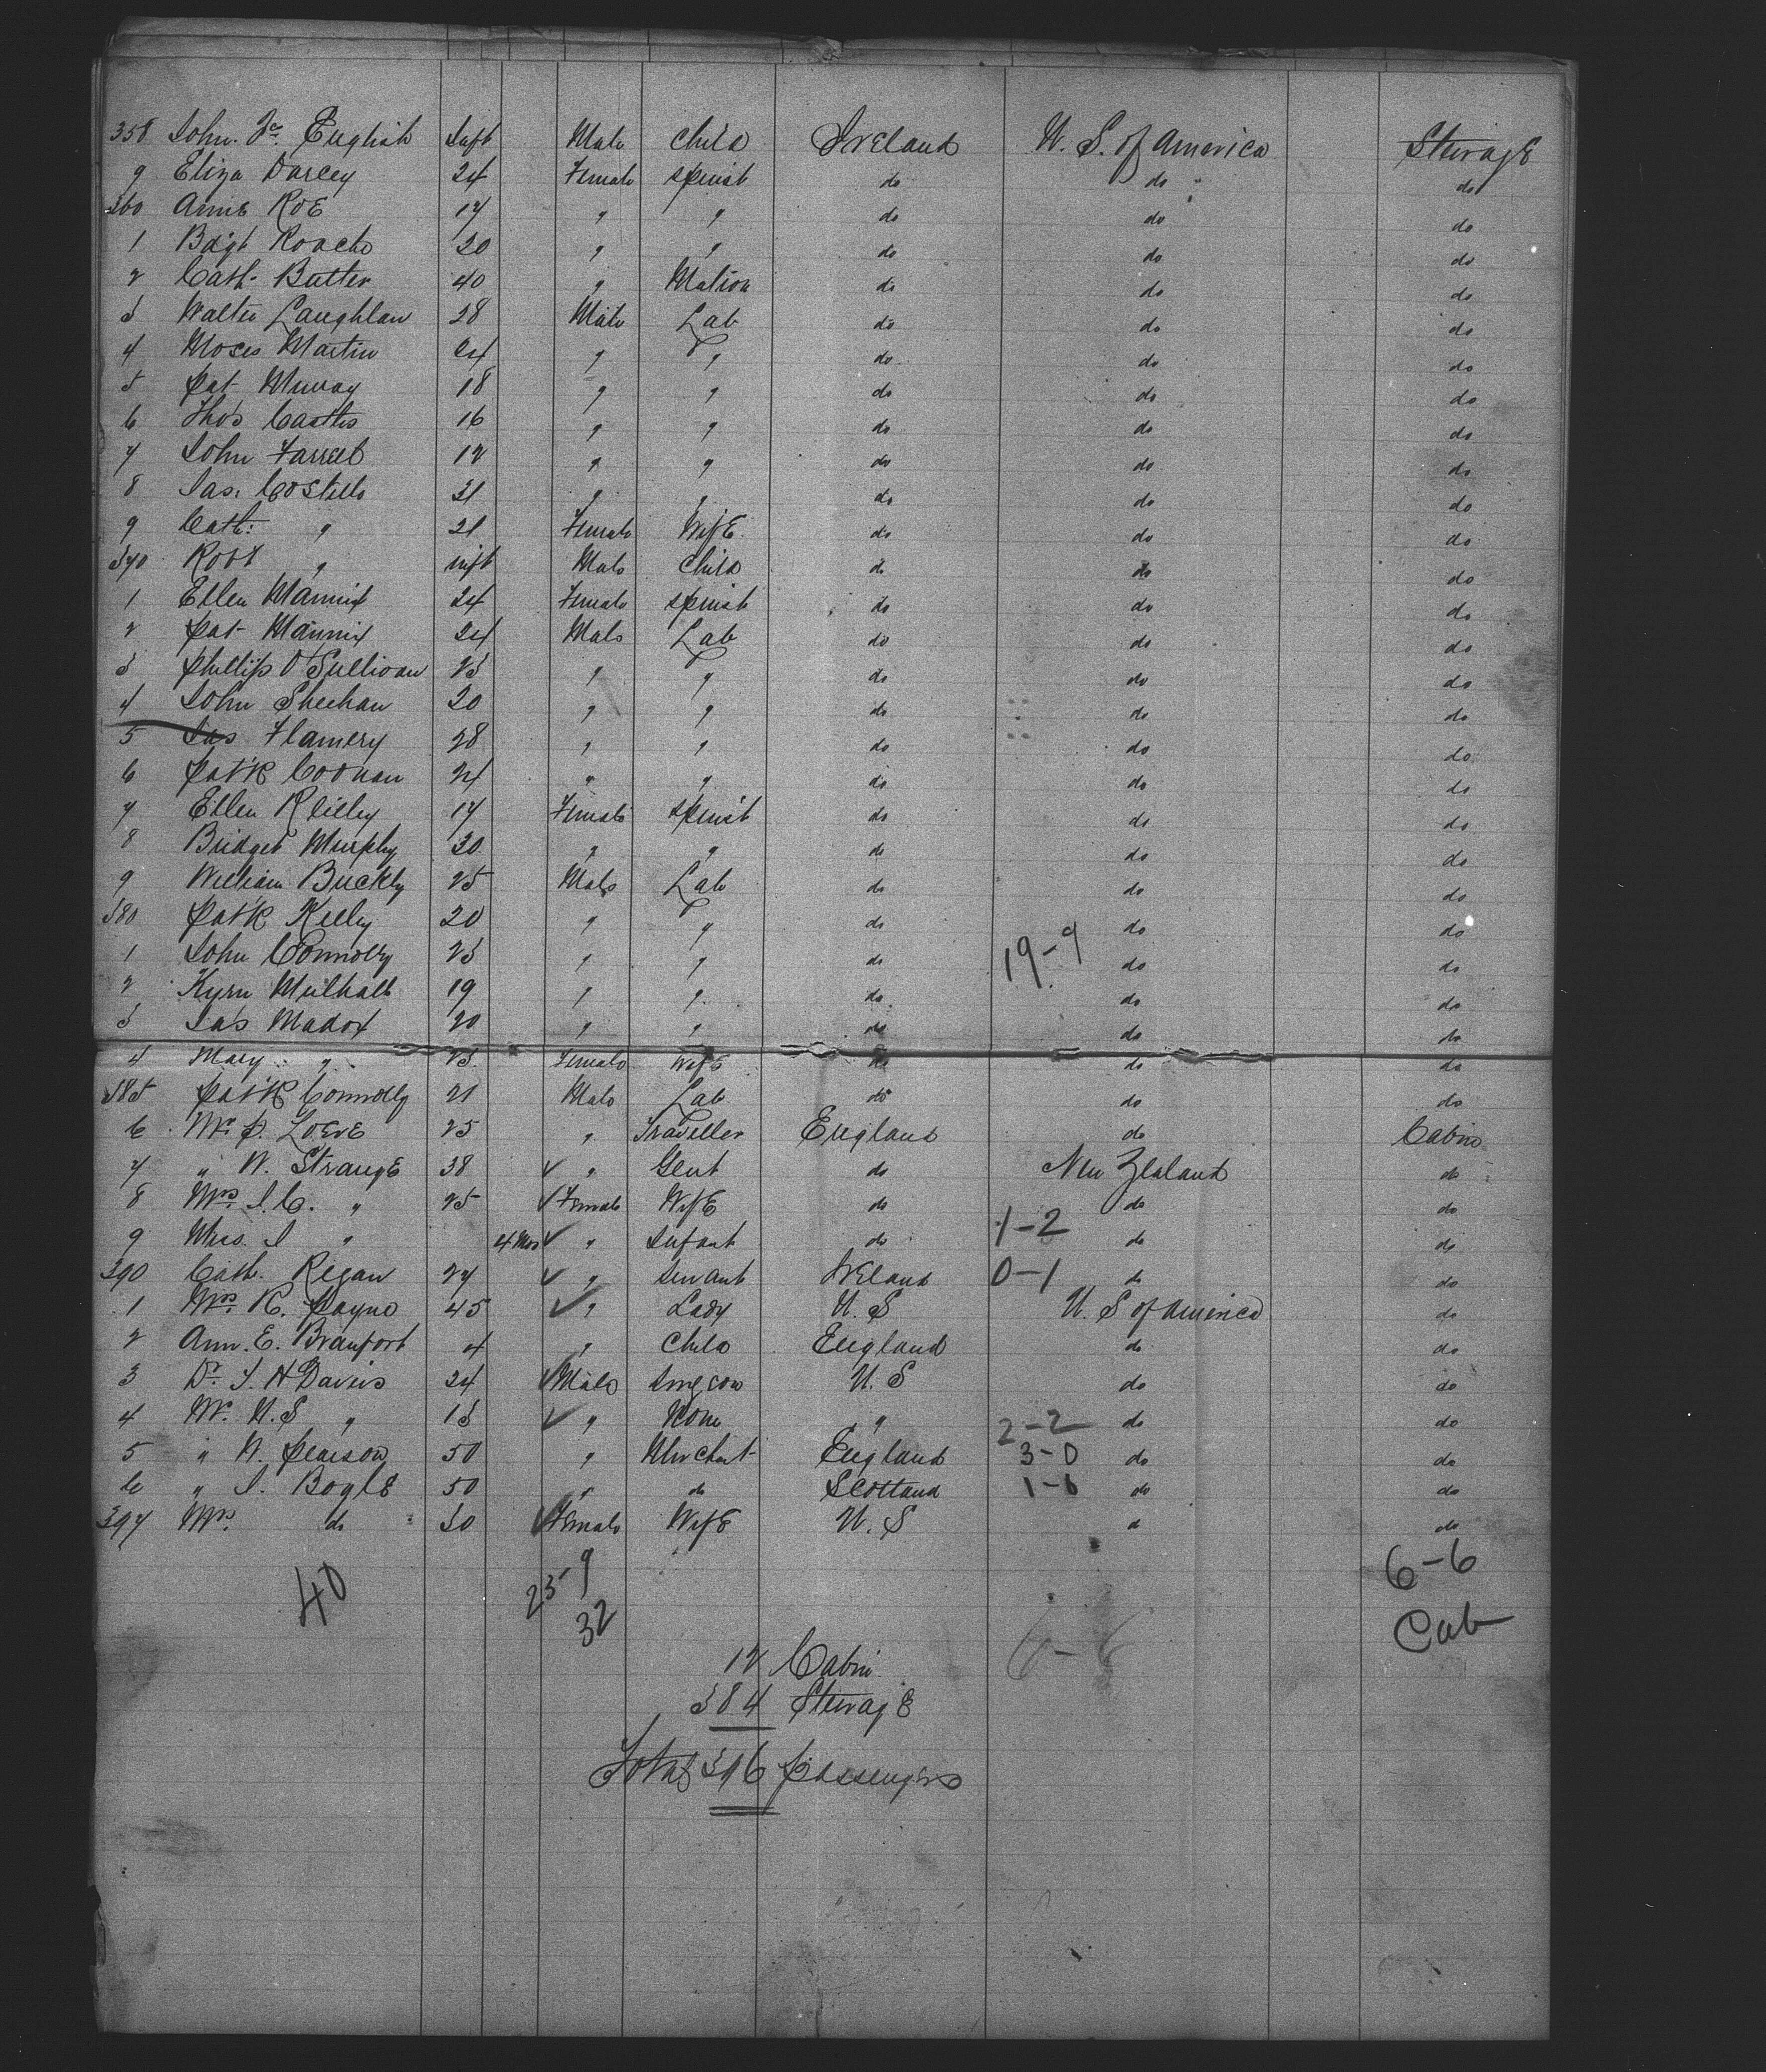 358 John. Jr. English Inft Male Child Ireland U. S. of America Steerage
9 Eliza Darcey 24 Female Spinst do do do
360 Anne Roe 17 " " do do do
1 Bdgt Roache 20 " " do do do
2 Cath. Butler 40 " Matron do do do
3 Walter Laughlan 28 Male Lab do do do
4 Moses Martin 24 " " do do do
5 Pat Murray 18 " " do do do
6 Thos 16 " " do do do
7 John Farrell 12 " " do do do
8 Jas. Costello 31 " " do do do
9 Cath: " 21 Female Wife do do do
370 Robt " inft Male Child do do do
1 Ellen Mannix 24 Female Spinst do do do
2 Pat Mannix 24 Male Lab do do do
3 Phillip O'Sullivan 23 " " do do do
4 John Sheehan 20 " " do do do
5 Jas Flamery 28 " " do do do
6 Patk Coonan 24 " " do do do
7 Ellen Reilley 17 Female Spinst do do do
8 Bridget Murphy 30 " " do do do
9 William Buckly 25 Male Lab do do do
380 Patk Kelly 20 " " do do do
1 John Connolly 23 " " do 19-9 do do
2 Kyrn Mulhall 19 " " do do do
3 Jas Madox 20 " " do do do
4 Mary " 23 Female Wife do do do
385 Patk Connolly 21 Male Lab do do do
6 Mr. P. Loeve 25 " Traveller England do Cabin
7 " W. Strange 38 " Gent do New Zealand do
8 Mrs. J. C. " 25 Female Wife do do do
9 Miss. J " 4 Mos " Infant do 1-2 do do
390 Cath. Regan 27 " Servant Ireland 0-1 do do
1 Mrs. K. Payne 45 " Lady U. S U. S of America do
2 Ann. E. Branfort 4 " Child England do do
3 Dr. J. H Davies 24 Male Surgeon U. S do do
4 Mr. H. S " 13 " None " 2-2 do do
5 " W. Pearson 50 " Merchant England 3-0 do do
6 " J. Bogle 50 " do Scotland 1-0 do do
397 Mrs. do 30 Female Wife U. S do do
40 23-9 6-6
32 Cab
6-6
12 Cabin
384 Steerage
Total 396 Passengers